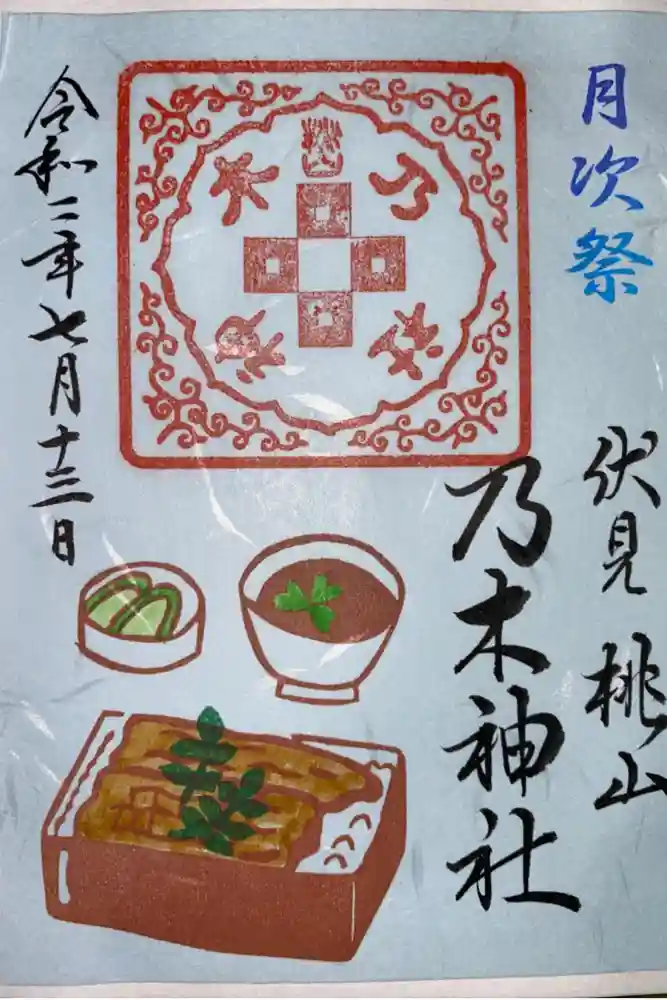 月次祭
伏見 桃山
乃木神社
乃木神社
令和二年七月十三日